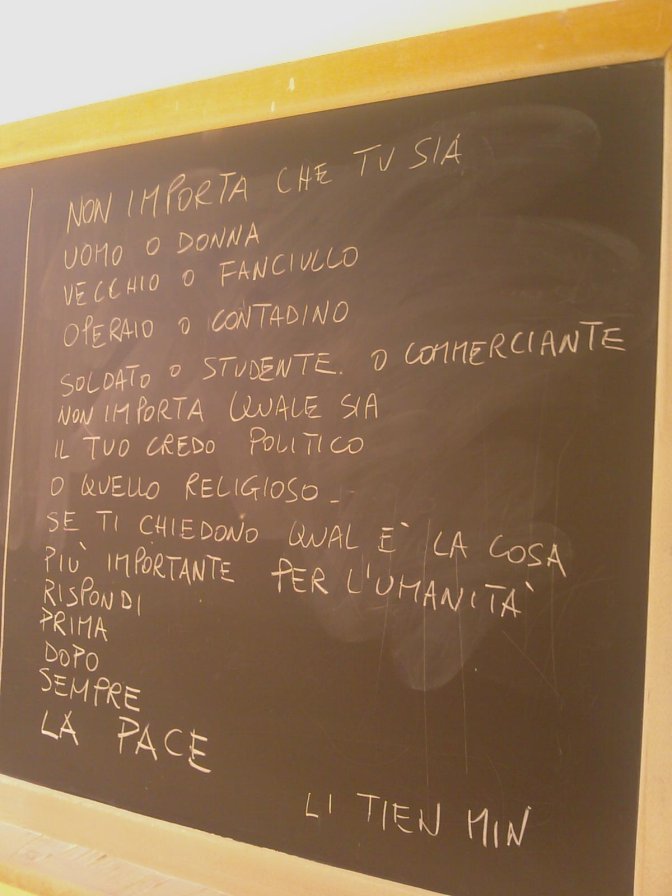 NON IMPORTA CHE TU SIA
UOMO O DONNA
VECCHIO O FANCIULLO
OPERAIO O CONTADINO
SOLDATO O STUDENTE. O COMMERCIANTE
NON IMPORTA QUALE SIA
IL TUO CREDO POLITICO
O QUELLO RELIGIOSO _
SE TI CHIEDONO QUAL E' LA COSA
PIU' IMPORTANTE PER L'UMANITA'
RISPONDI
PRIMA
DOPO
SEMPRE
LA PACE
LI TIEN MIN